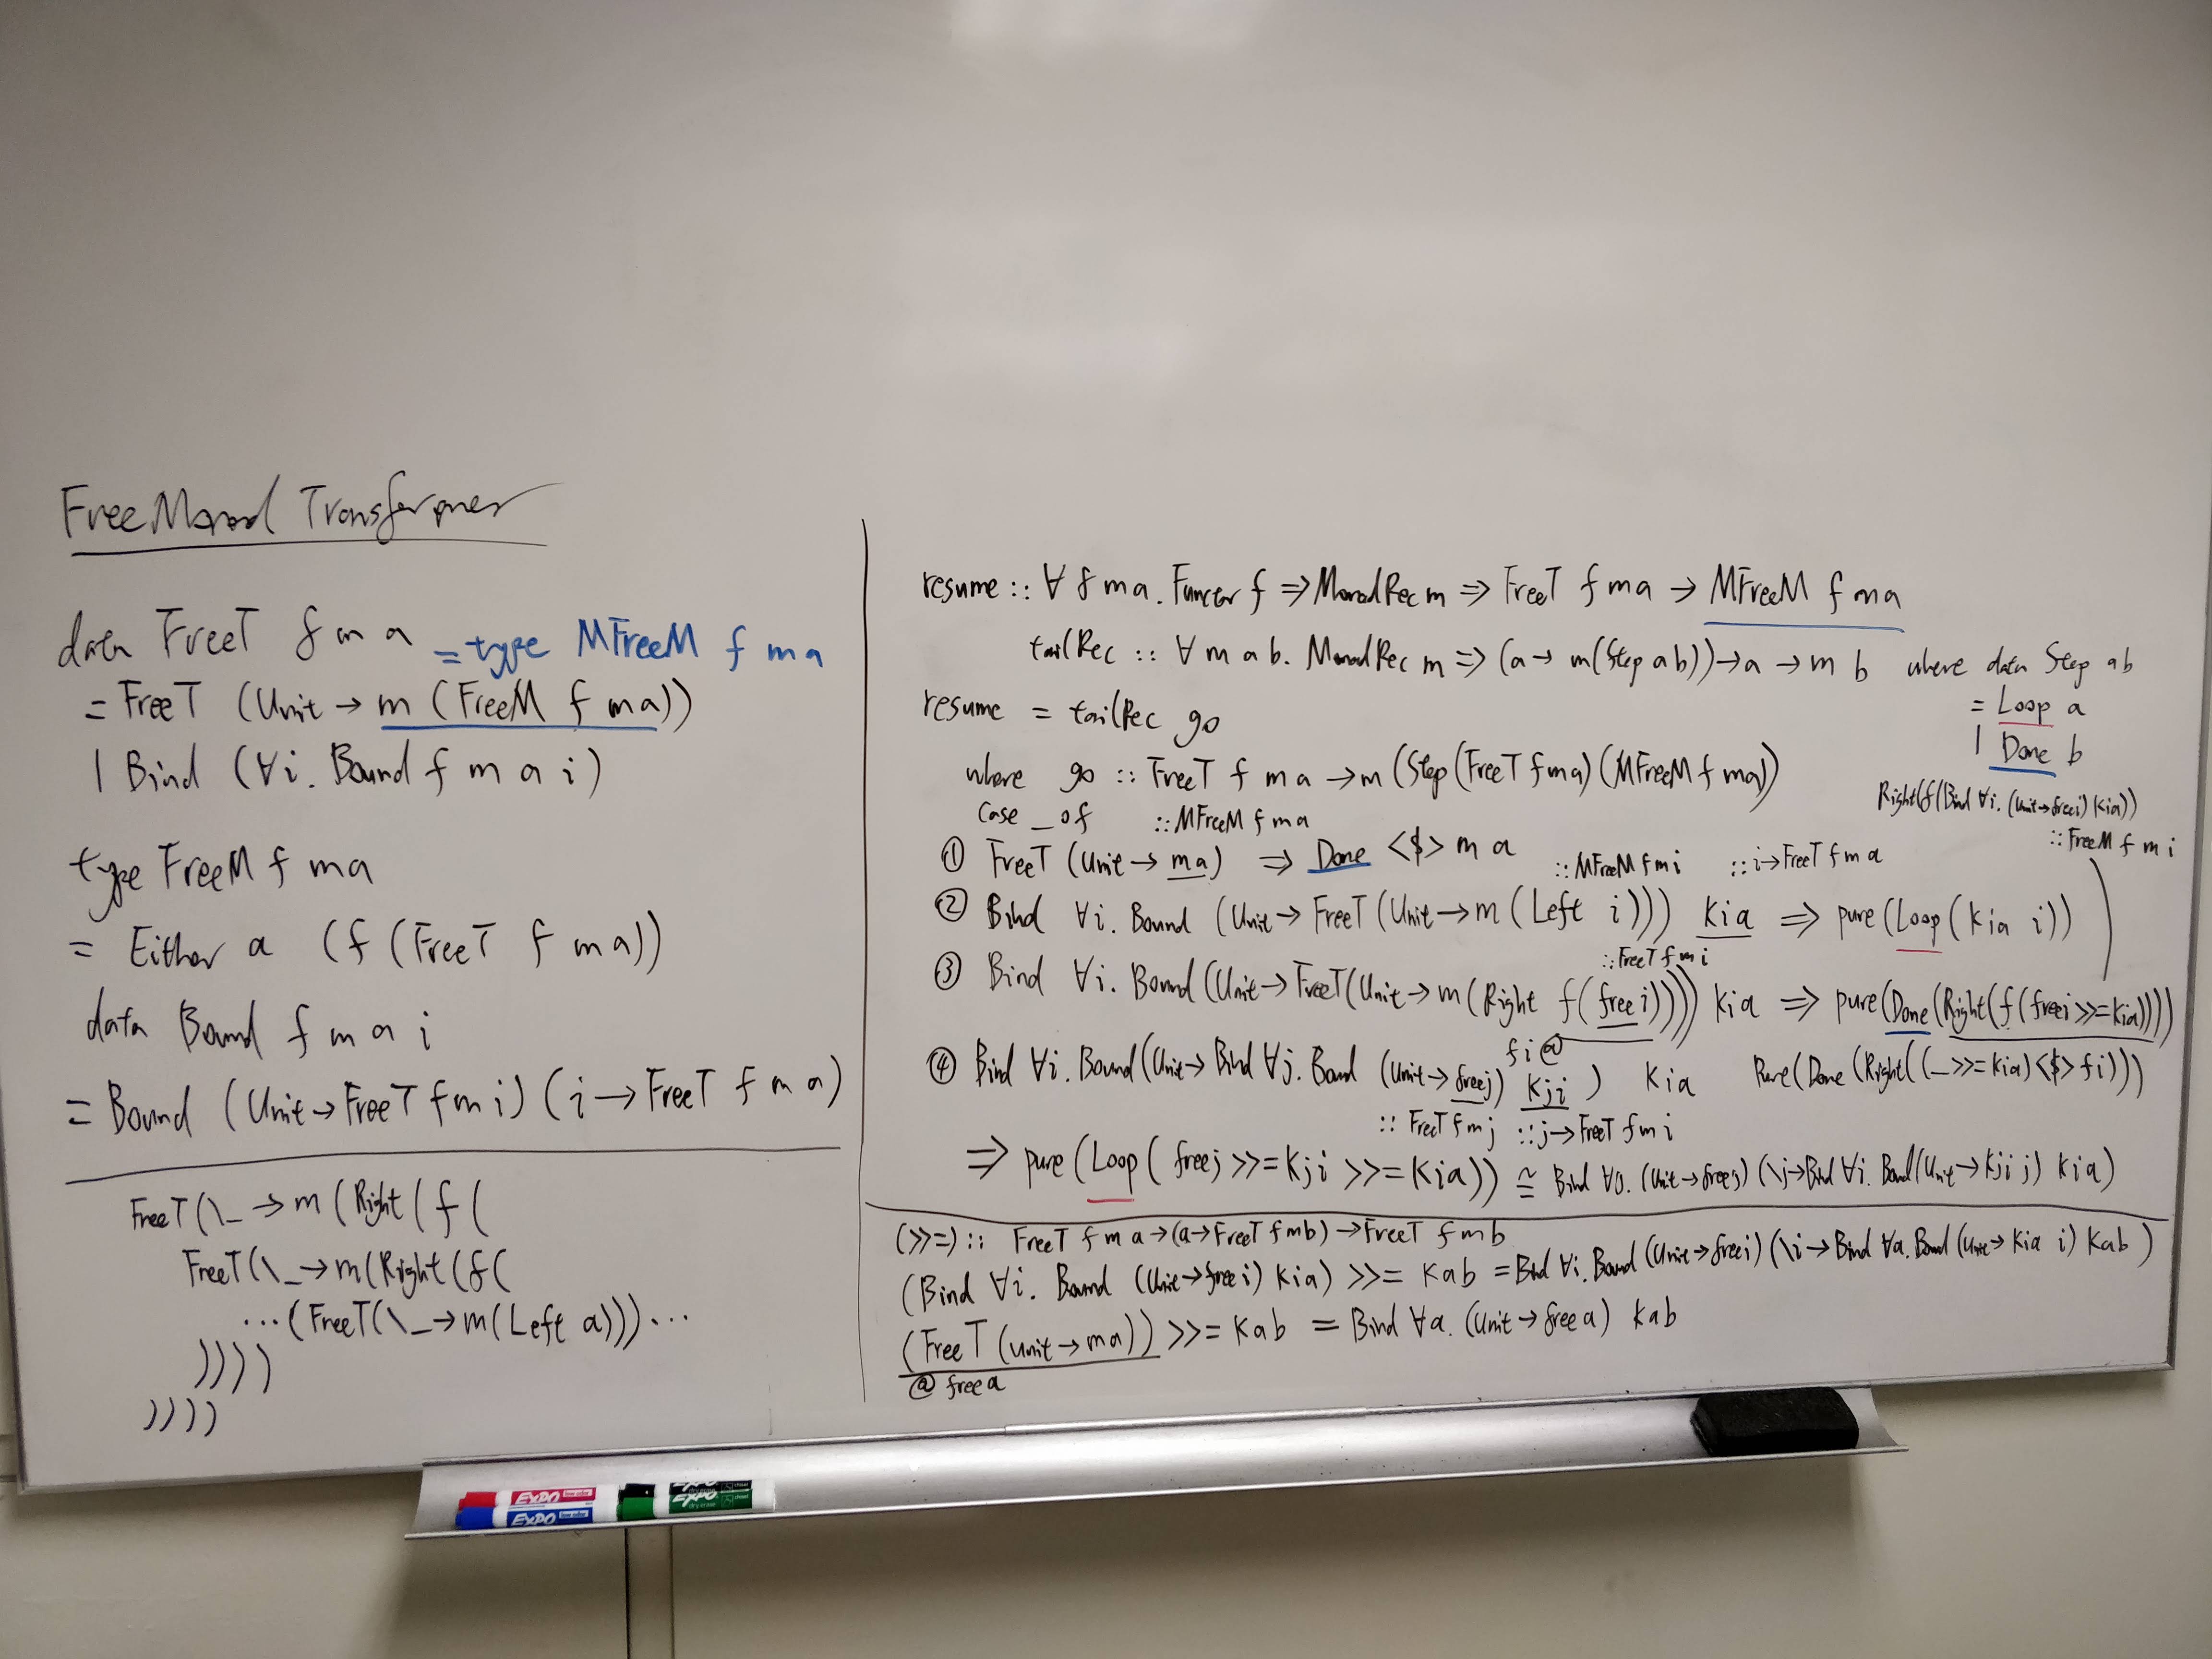 Free Monad Transformer
data FreeT f m a = type MFreeM f m a
= FreeT (Unit → m (FreeM f m a))
| Bind (∀i. Bound f m a i)
type FreeM f m a
= Either a (f (FreeT f m a))
data Bound f m a i
= Bound (Unit → FreeT f m i) (i → FreeT f m a)
FreeT (\_ → m (Right (f (
FreeT (\_ → m (Right (f (
... (FreeT (\_ → m (Left a))) ...
))))
))))
resume :: ∀ f m a. Functor f ⇒ MonadRec m ⇒ FreeT f m a → MFreeM f m a
tailRec :: ∀ m a b. MonadRec m ⇒ (a → m (Step a b)) → a → m b where data Step a b
= Loop a
| Done b
resume = tailRec go
where go :: FreeT f m a → m (Step (FreeT f m a) (MFreeM f m a))
Right (f (Bind ∀i. (Unit → freei) kia))
:: FreeM f m i
case _ of :: MFreeM f m a
① FreeT (Unit → ma) ⇒ Done <$> m a
:: MFreeM f m i :: i → FreeT f m a
② Bind ∀i. Bound (Unit → FreeT (Unit → m (Left i))) kia ⇒ pure (Loop (kia i))
:: FreeT f m i
③ Bind ∀i. Bound (Unit → FreeT (Unit → m (Right f (free i)))) kia ⇒ pure (Done (Right (f (freei >>= kia))))
fi@
④ Bind ∀i. Bound (Unit → Bind ∀j. Bound (Unit → freej) kji ) kia Pure (Done (Right ((_ >>= kia) <$> fi)))
:: FreeT f m j :: j → FreeT f m i
⇒ pure (Loop ( freej >>= kji >>= kia)) ≅ Bind ∀j. (Unit → freej) (\j → Bind ∀i. Bound (Unit → kji j) kia)
(>>=) :: FreeT f m a → (a → FreeT f m b) → FreeT f m b
(Bind ∀i. Bound (Unit → free i) kia) >>= kab = Bind ∀i. Bound (Unit → free i) (\i → Bind ∀a. Bound (Unit → kia i) kab )
(FreeT (Unit → ma)) >>= kab = Bind ∀a. (Unit → free a) kab
@ free a
EXPO
EXPO
EXPO
EXPO